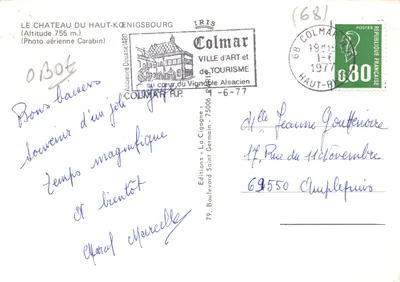 LE CHATEAU DU HAUT-KŒNIGSBOURG
(Altitude 755 m.)
(Photo aérienne Carabin)
Bons baisers
Souvenir d'un joli
temps magnifique
et bientôt
Marcelle
IRIS
Colmar
VILLE d'ART et
de TOURISME
au cœur du Vignoble Alsacien
COLMAR R.P. 1-6-77
Editions "La Cigogne"
79, Boulevard Saint Germain - 75006
(68)
68 COLMAR
1-6
1977
HAUT-R
POSTES
0,80
REPUBLIQUE FRANÇAISE
Mlle Jeanne Gouttenoire
17, Rue du 11 Novembre
69550 Amplepuis